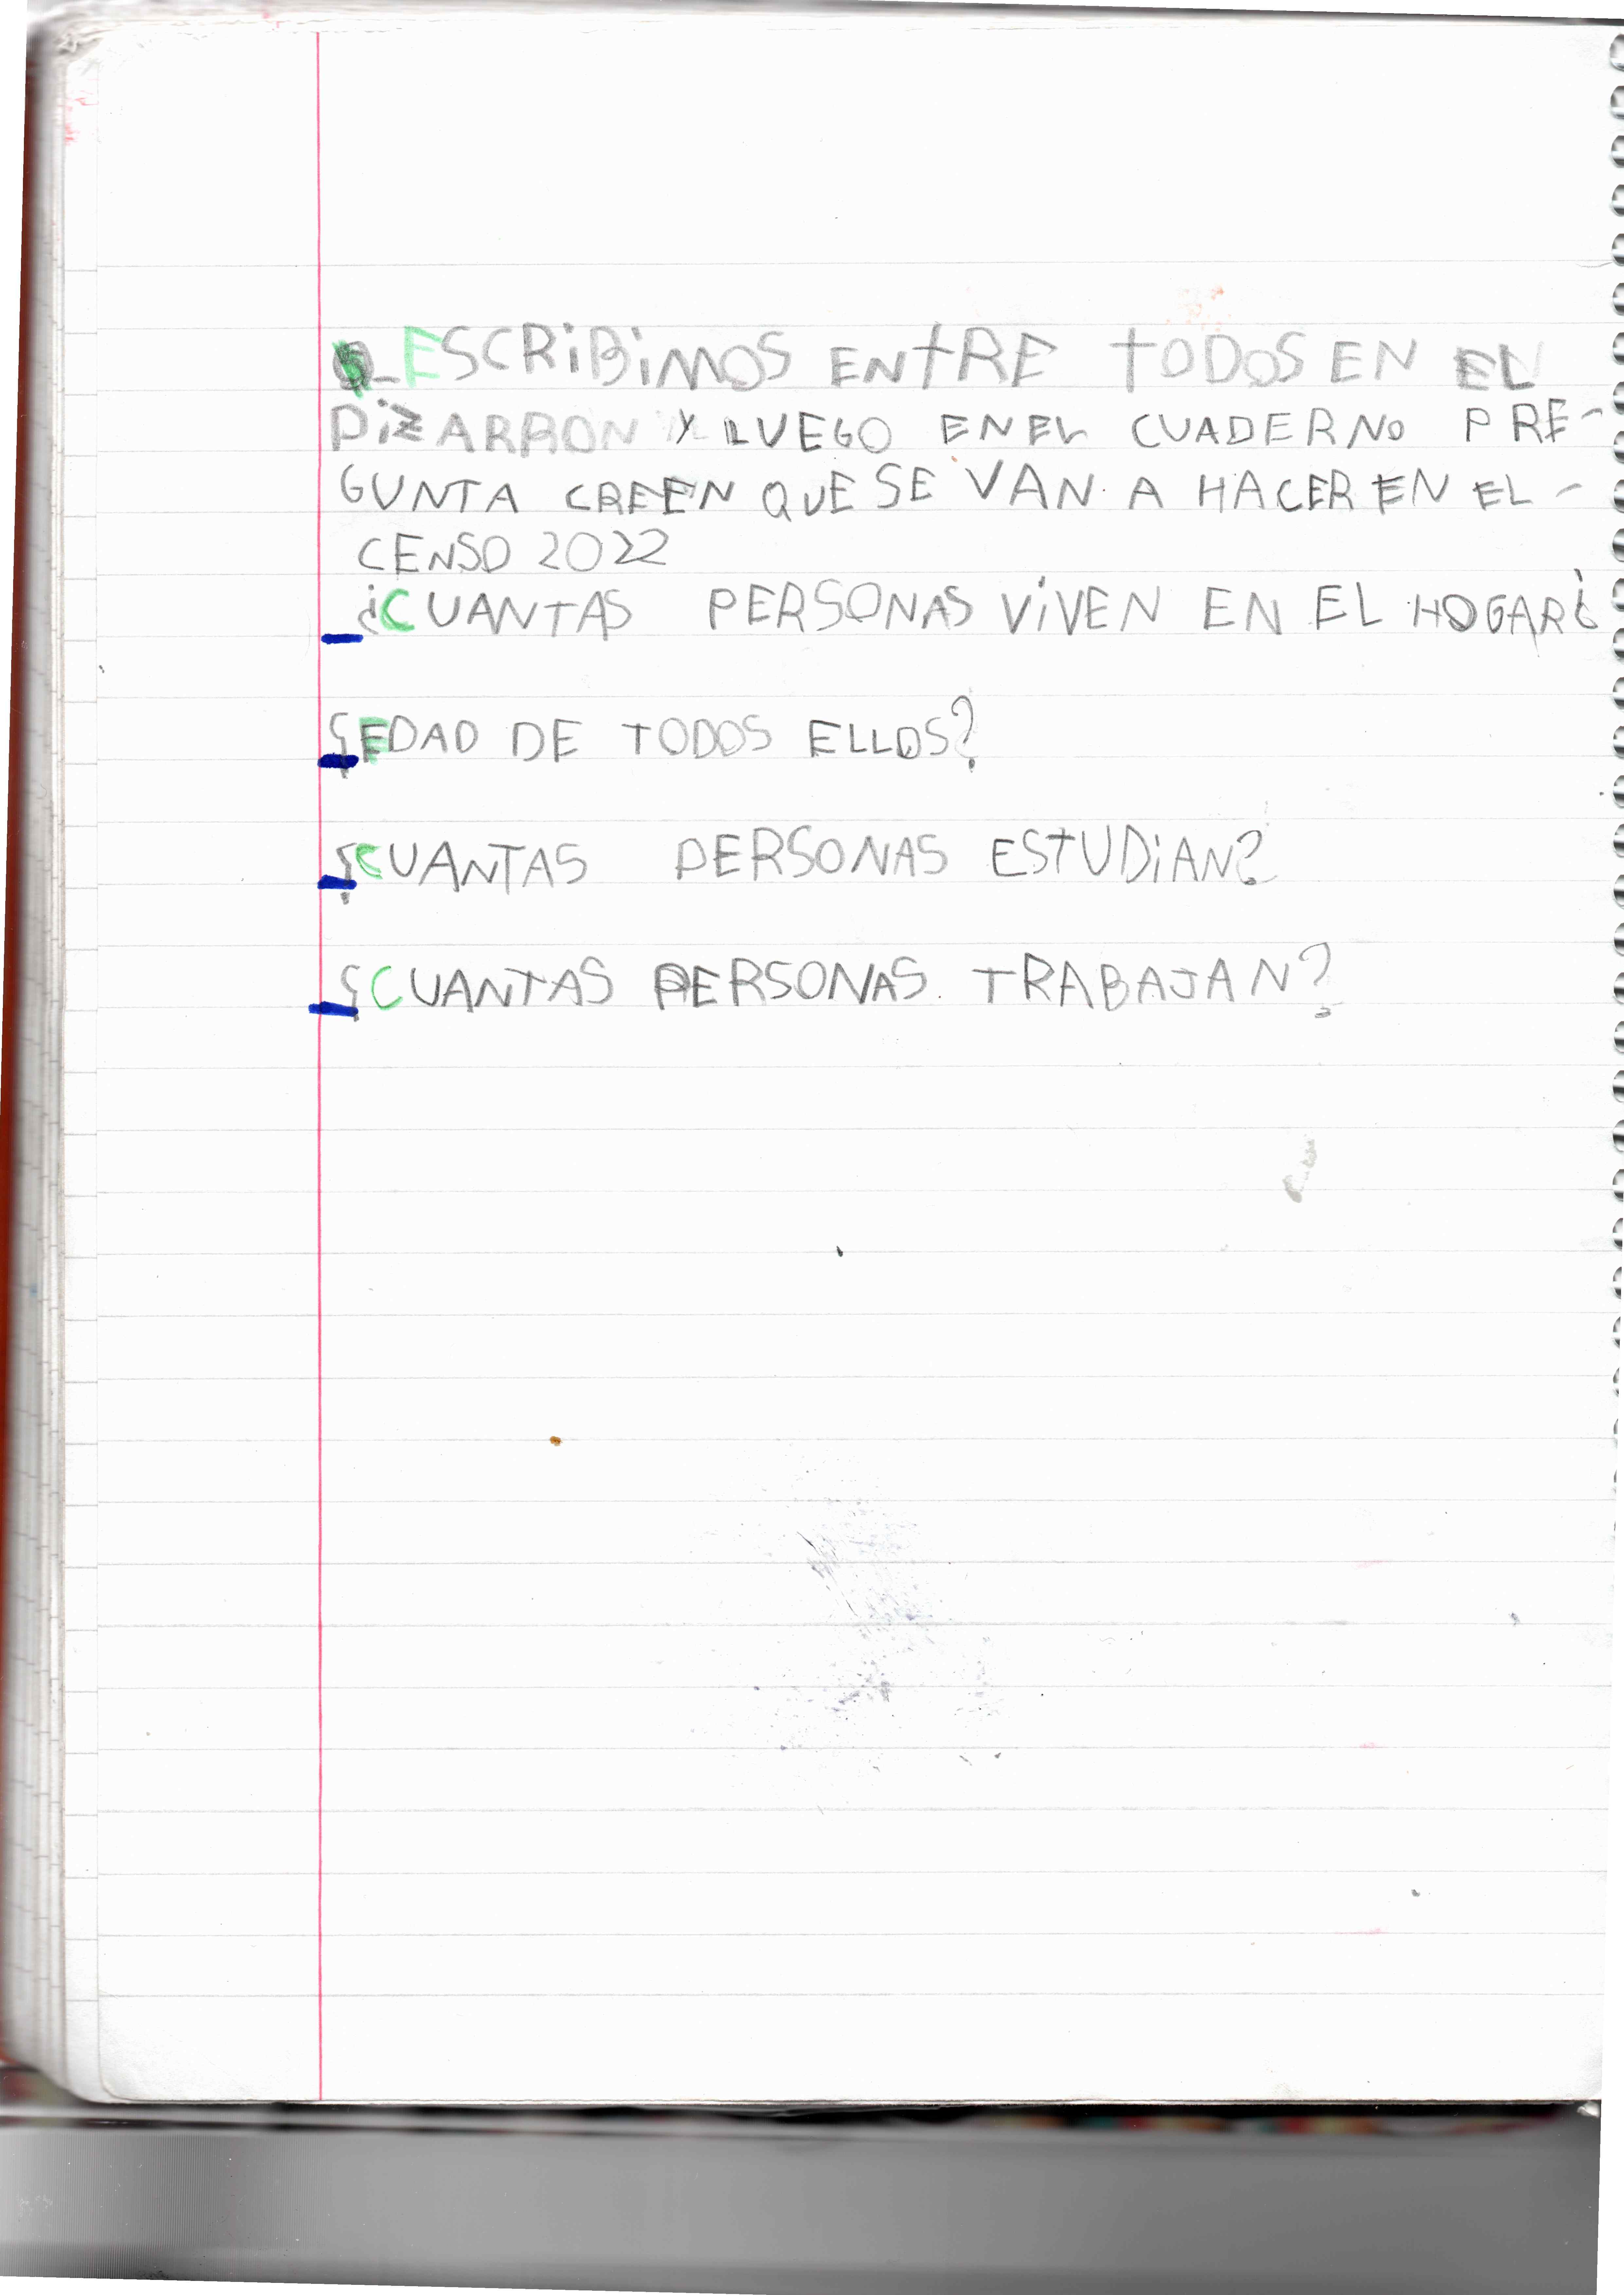 ESCRiBiMOS ENTRE TODOS EN EL
PiZARRON Y LUEGO EN EL CUADERNO PRE-
GUNTA CREEN QUE SE VAN A HACER EN EL -
CENSO 2022
_¿CUANTAS PERSONAS ViVEN EN EL HOGAR¿
_¿EDAD DE TODOS ELLOS?
_¿CUANTAS PERSONAS ESTUDiAN?
_¿CUANTAS PERSONAS TRABAJAN?